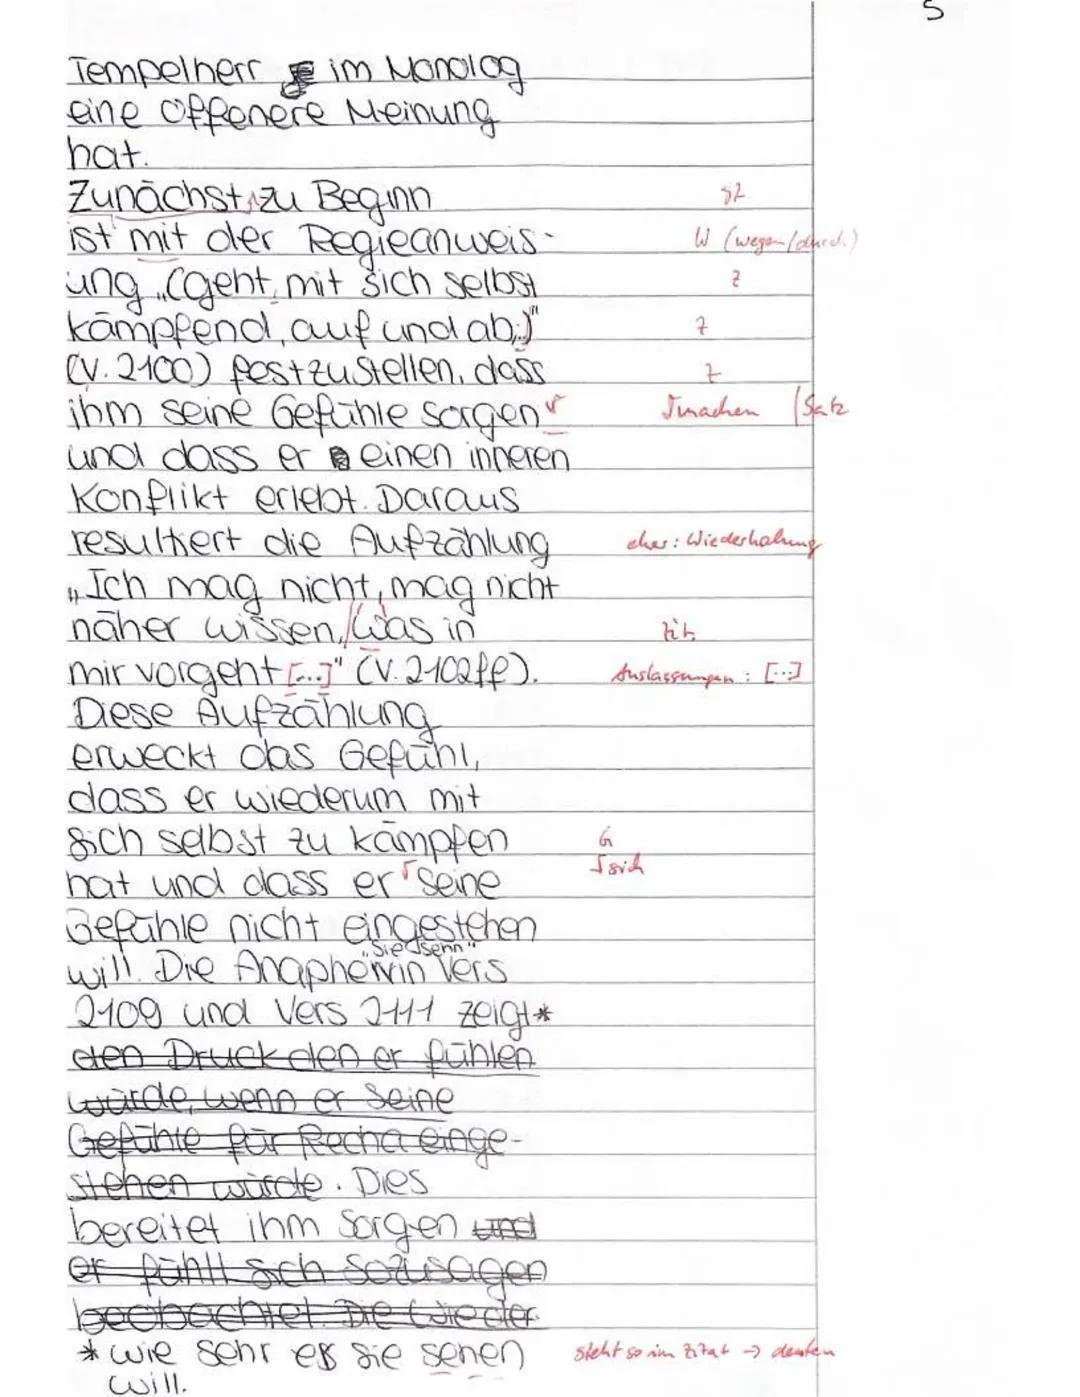 5
Tempelherr im Monolog
eine offenere Meinung
hat.
Zunächst zu Beginn
sz
ist mit der Regieanweis-
W (wegen/durch)
ung „(geht, mit sich selbst
z
kämpfend, auf und ab;)"
z
(V. 2100) festzustellen, dass
z
ihm seine Gefühle sorgen
machen / Satz
und dass er einen inneren
Konflikt erlebt. Daraus
resultiert die Aufzählung
eher: Wiederholung
„Ich mag nicht, mag nicht
näher wissen, / Was in
zit.
mir vorgeht [...]" (V. 2102ff).
Auslassungen: [...]
Diese Aufzählung
erweckt das Gefühl,
dass er wiederum mit
sich selbst zu kämpfen
G
hat und dass er seine
sich
Gefühle nicht eingestehen
will. Die Anapher „Sie sehn" in Vers
2109 und Vers 2111 zeigt*
den Druck den er fühlen
würde, wenn er seine
Gefühle für Recha einge-
stehen würde. Dies
bereitet ihm Sorgen und
er fühlt sich sozusagen
beobachtet. Die Wieder
* wie sehr er sie sehen
steht so im Zitat → deuten
will.